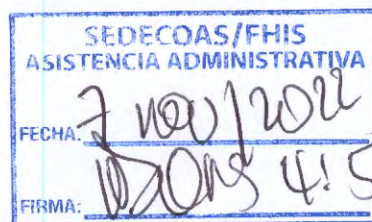 SEDECOAS/FHIS
ASISTENCIA ADMINISTRATIVA
FECHA: 7 nov/2022
FIRMA: 4:5